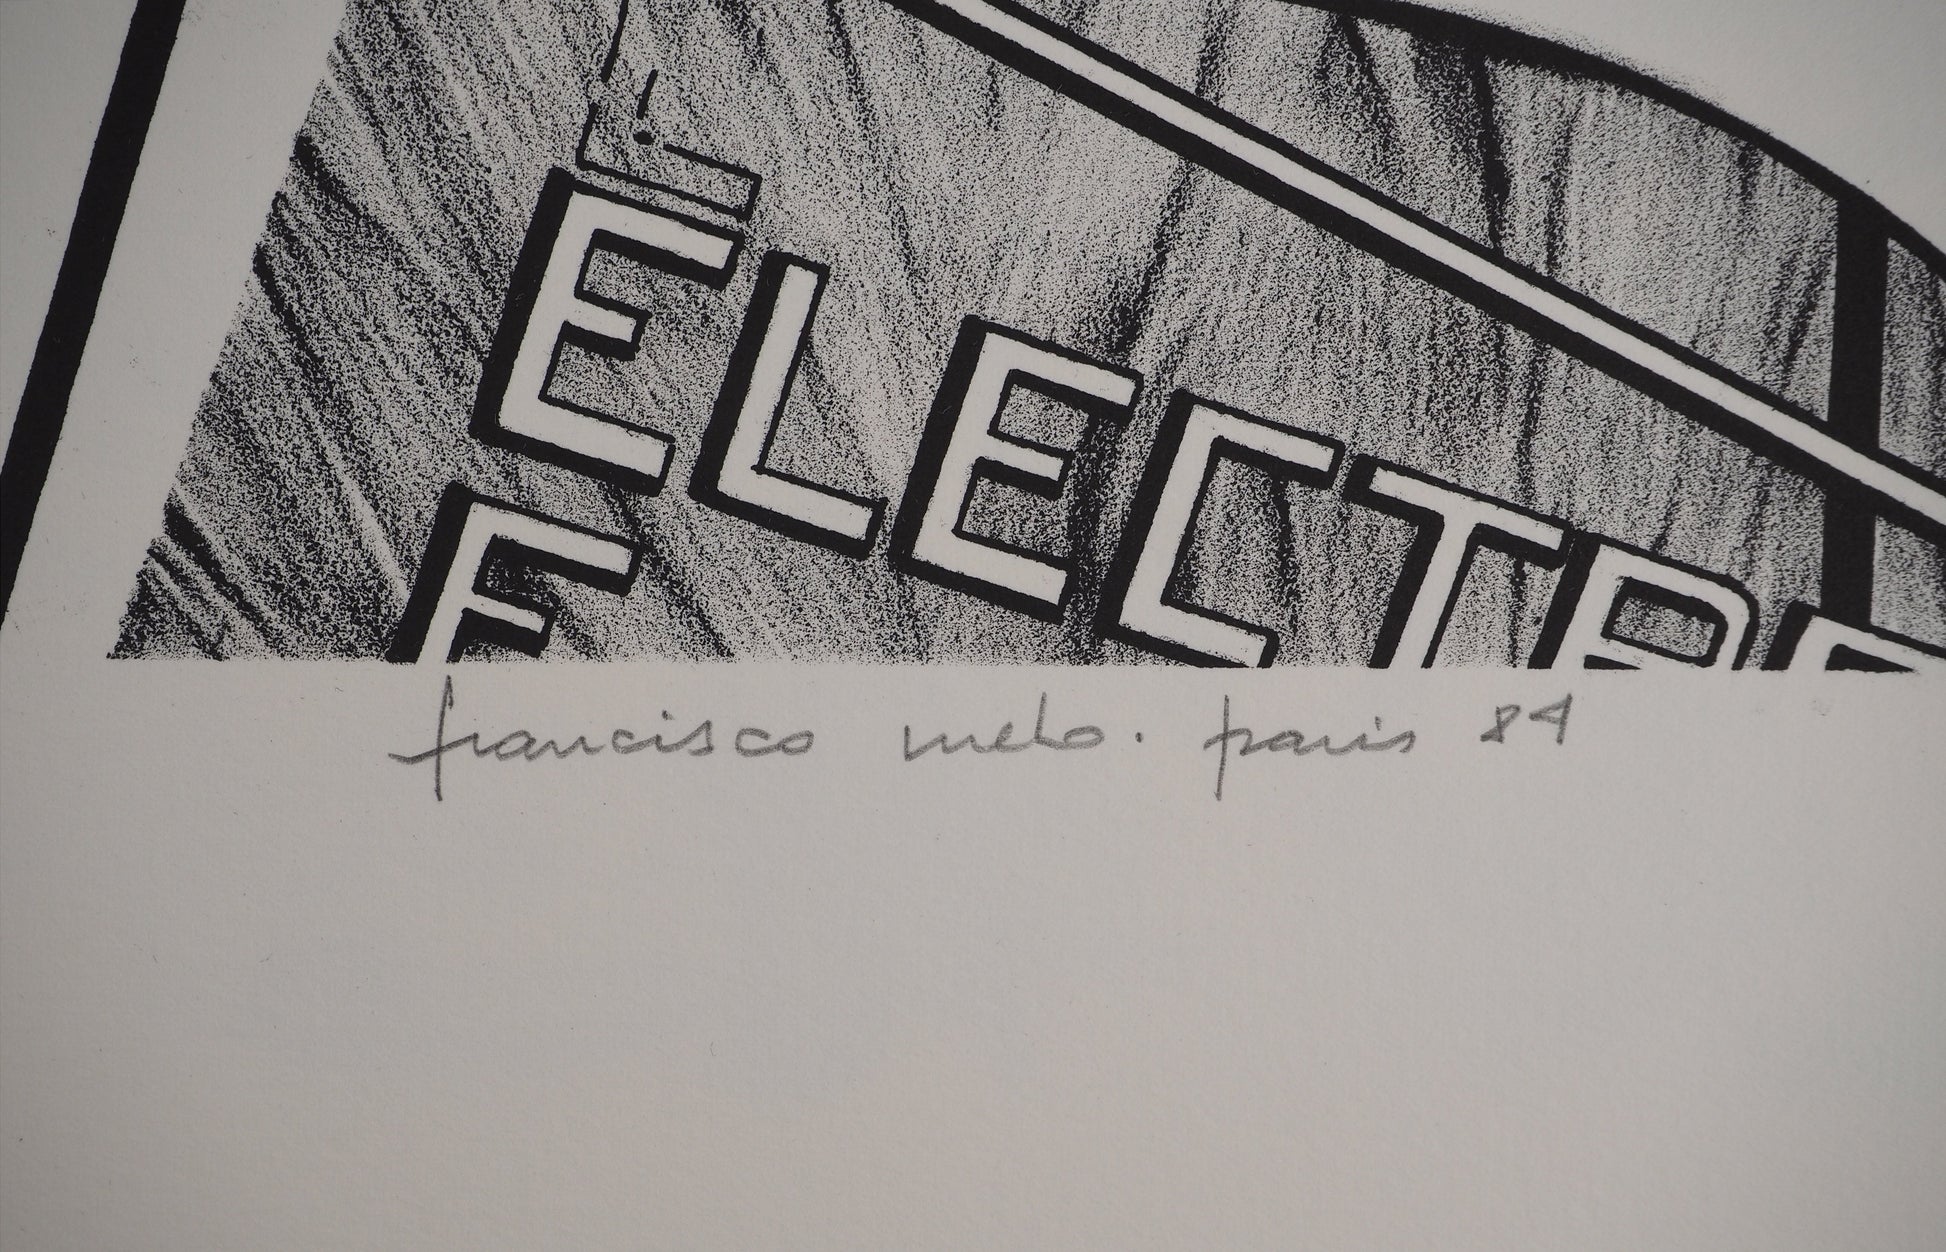 ELECTR
francisco melo. paris 84